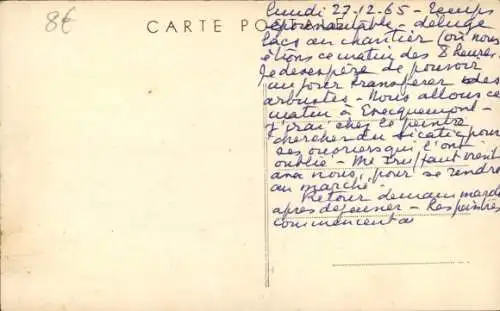 8€
CARTE POSTALE
lundi 27-12-65 - Temps
épouvantable - déluge
lacs au chantier (où nous
étions ce matin dès 8 heures.
Je désespère de pouvoir
un jour transférer des
arbustes - Nous allons ce
matin à Ecquemont -
J'irai chez le peintre
chercher du siccatif pour
ses ouvriers qui l'ont
oublié - Me Truffaut vient
avec nous, pour se rendre
au marché.
Retour demain mardi
après déjeuner - Les peintres
commencent a